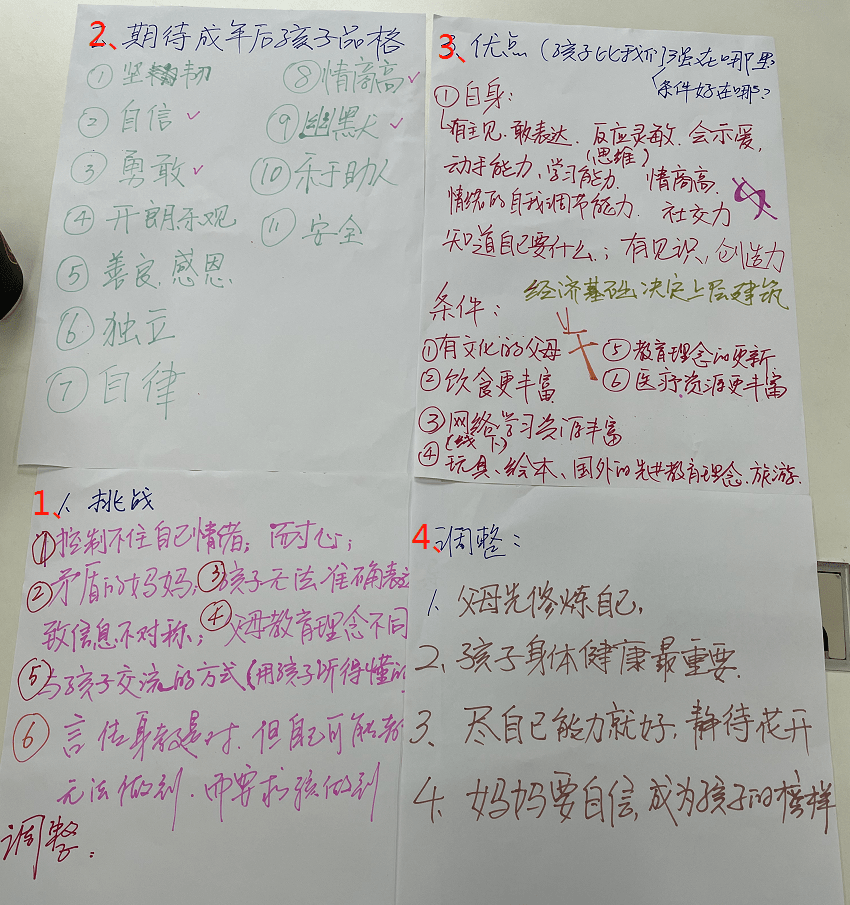 2、期待成年后孩子品格
① 坚韧
② 自信 ✓
③ 勇敢 ✓
④ 开朗乐观
⑤ 善良.感恩
⑥ 独立
⑦ 自律
⑧ 情商高 ✓
⑨ 幽默 ✓
⑩ 乐于助人
⑪ 安全
3、优点(孩子比我们强在哪里
条件好在哪?
① 自身:
有主见.敢表达.反应灵敏.会示爱,
(思维)
动手能力、学习能力、情商高.
情绪的自我调节能力. 社交力
知道自己要什么;有见识、创造力
经济基础决定上层建筑
条件:
① 有文化的父母
② 饮食更丰富
③ 网络学习资源丰富
(线下)
④ 玩具、绘本、国外的先进教育理念、旅游.
⑤ 教育理念的更新
⑥ 医疗资源更丰富
1、挑战
① 控制不住自己情绪;耐心;
② 矛盾的妈妈;③ 孩子无法准确表达
致信息不对称;④ 父母教育理念不同
⑤ 与孩子交流的方式(用孩子听得懂的
⑥ 言传身教是对.但自己可能
无法做到.而要求孩做到
调整:
4、调整:
1、父母先修炼自己,
2、孩子身体健康最重要.
3、尽自己能力就好,静待花开
4、妈妈要自信,成为孩子的榜样